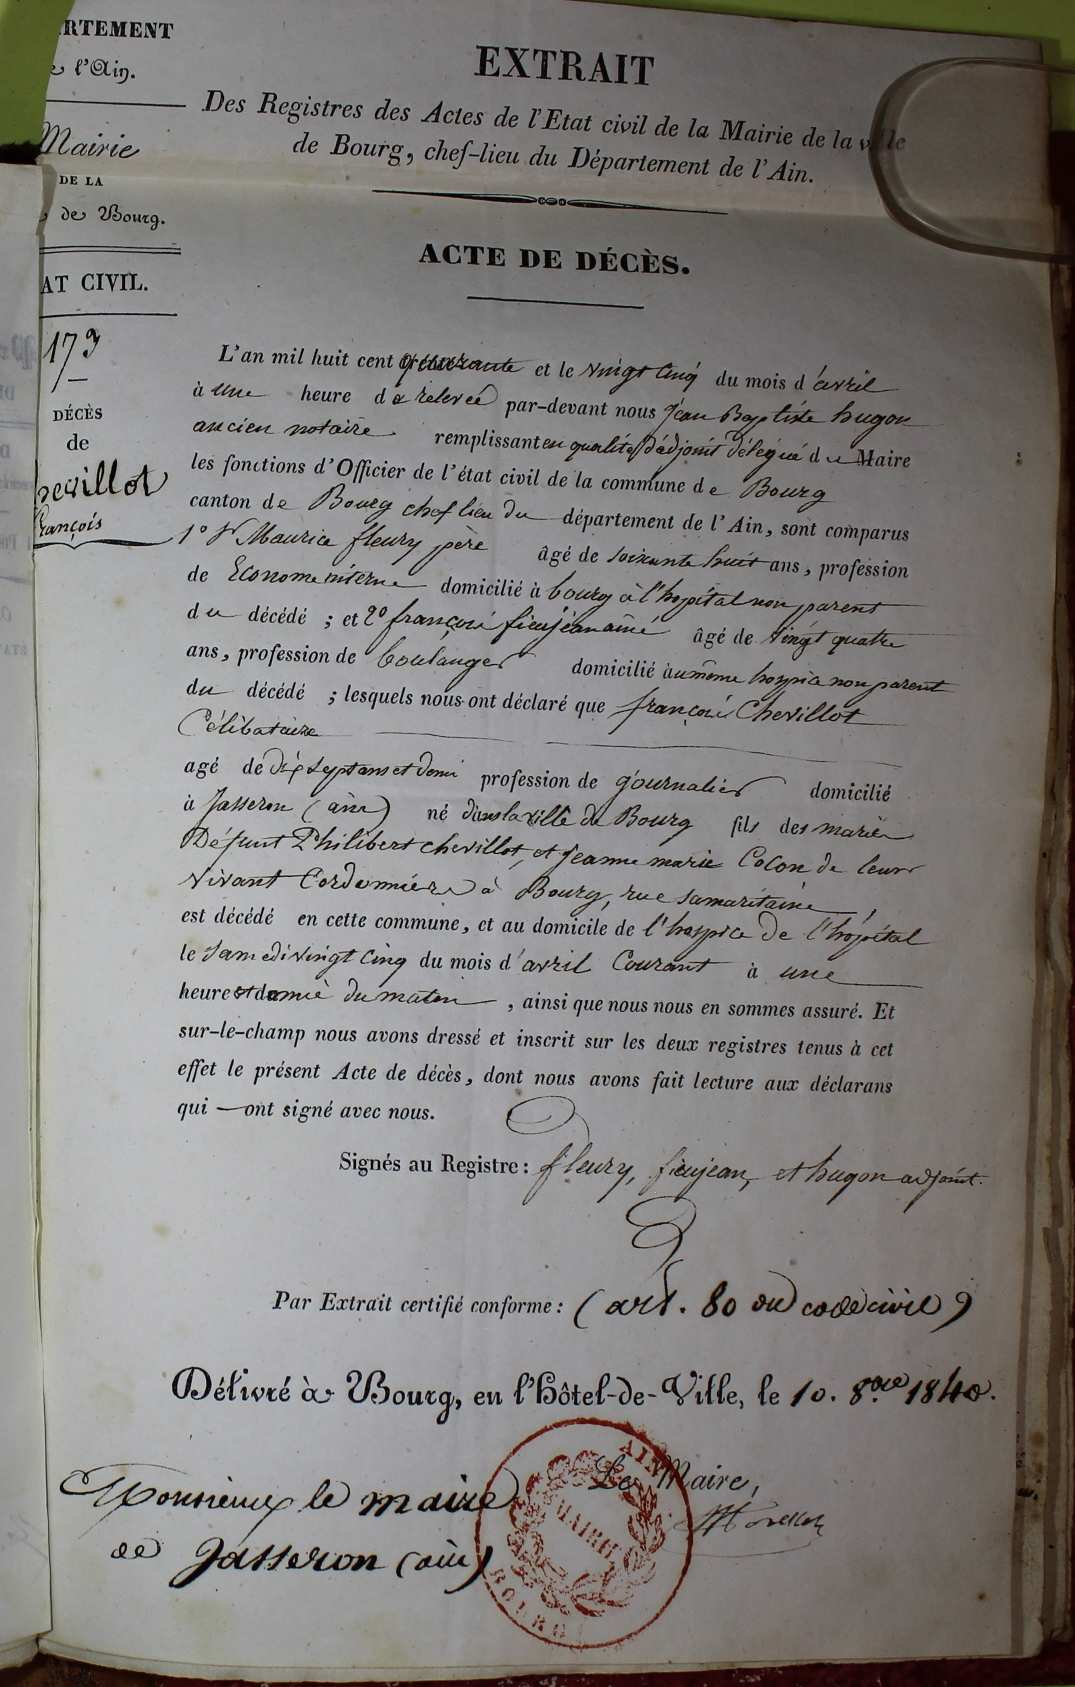 ARTEMENT
l'Ain.
Mairie
DE LA
de Bourg.
AT CIVIL.
173
DÉCÈS
de
hevillot
françois
EXTRAIT
Des Registres des Actes de l'Etat civil de la Mairie de la ville
de Bourg, chef-lieu du Département de l'Ain.
ACTE DE DÉCÈS.
L'an mil huit cent quarante et le vingt cinq du mois d'avril
à une heure de relevée par-devant nous Jean Baptiste hugon
ancien notaire remplissant en qualité d'adjoint délégué du Maire
les fonctions d'Officier de l'état civil de la commune de Bourg
canton de Bourg chef lieu du département de l'Ain, sont comparus
1º Sr Maurice fleury père âgé de soixante huit ans, profession
de Econome interne domicilié à bourg à l'hopital non parent
du décédé ; et 2º françois fieujean ainé âgé de vingt quatre
ans, profession de boulanger domicilié au même hospice non parent
du décédé ; lesquels nous ont déclaré que françois Chevillot
Célibataire
agé de dix sept ans et demi profession de journalier domicilié
à Jasseron (ain) né dans la ville de Bourg fils des mariés
Défunt Philibert chevillot, et Jeanne marie Colon de leur
vivant Cordonniers à Bourg, rue samaritaine,
est décédé en cette commune, et au domicile de l'hospice de l'hôpital
le samedi vingt cinq du mois d'avril Courant à une
heure et demie du matin, ainsi que nous nous en sommes assuré. Et
sur-le-champ nous avons dressé et inscrit sur les deux registres tenus à cet
effet le présent Acte de décès, dont nous avons fait lecture aux déclarans
qui — ont signé avec nous.
Signés au Registre : fleury, fieujean, et hugon adjoint.
Par Extrait certifié conforme : (art. 80 du code civil)
Délivré à Bourg, en l'Hôtel-de-Ville, le 10. 8bre 1840.
Le Maire,
Monsieur le maire
de Jasseron (ain)
AIN
MAIRIE
BOURG